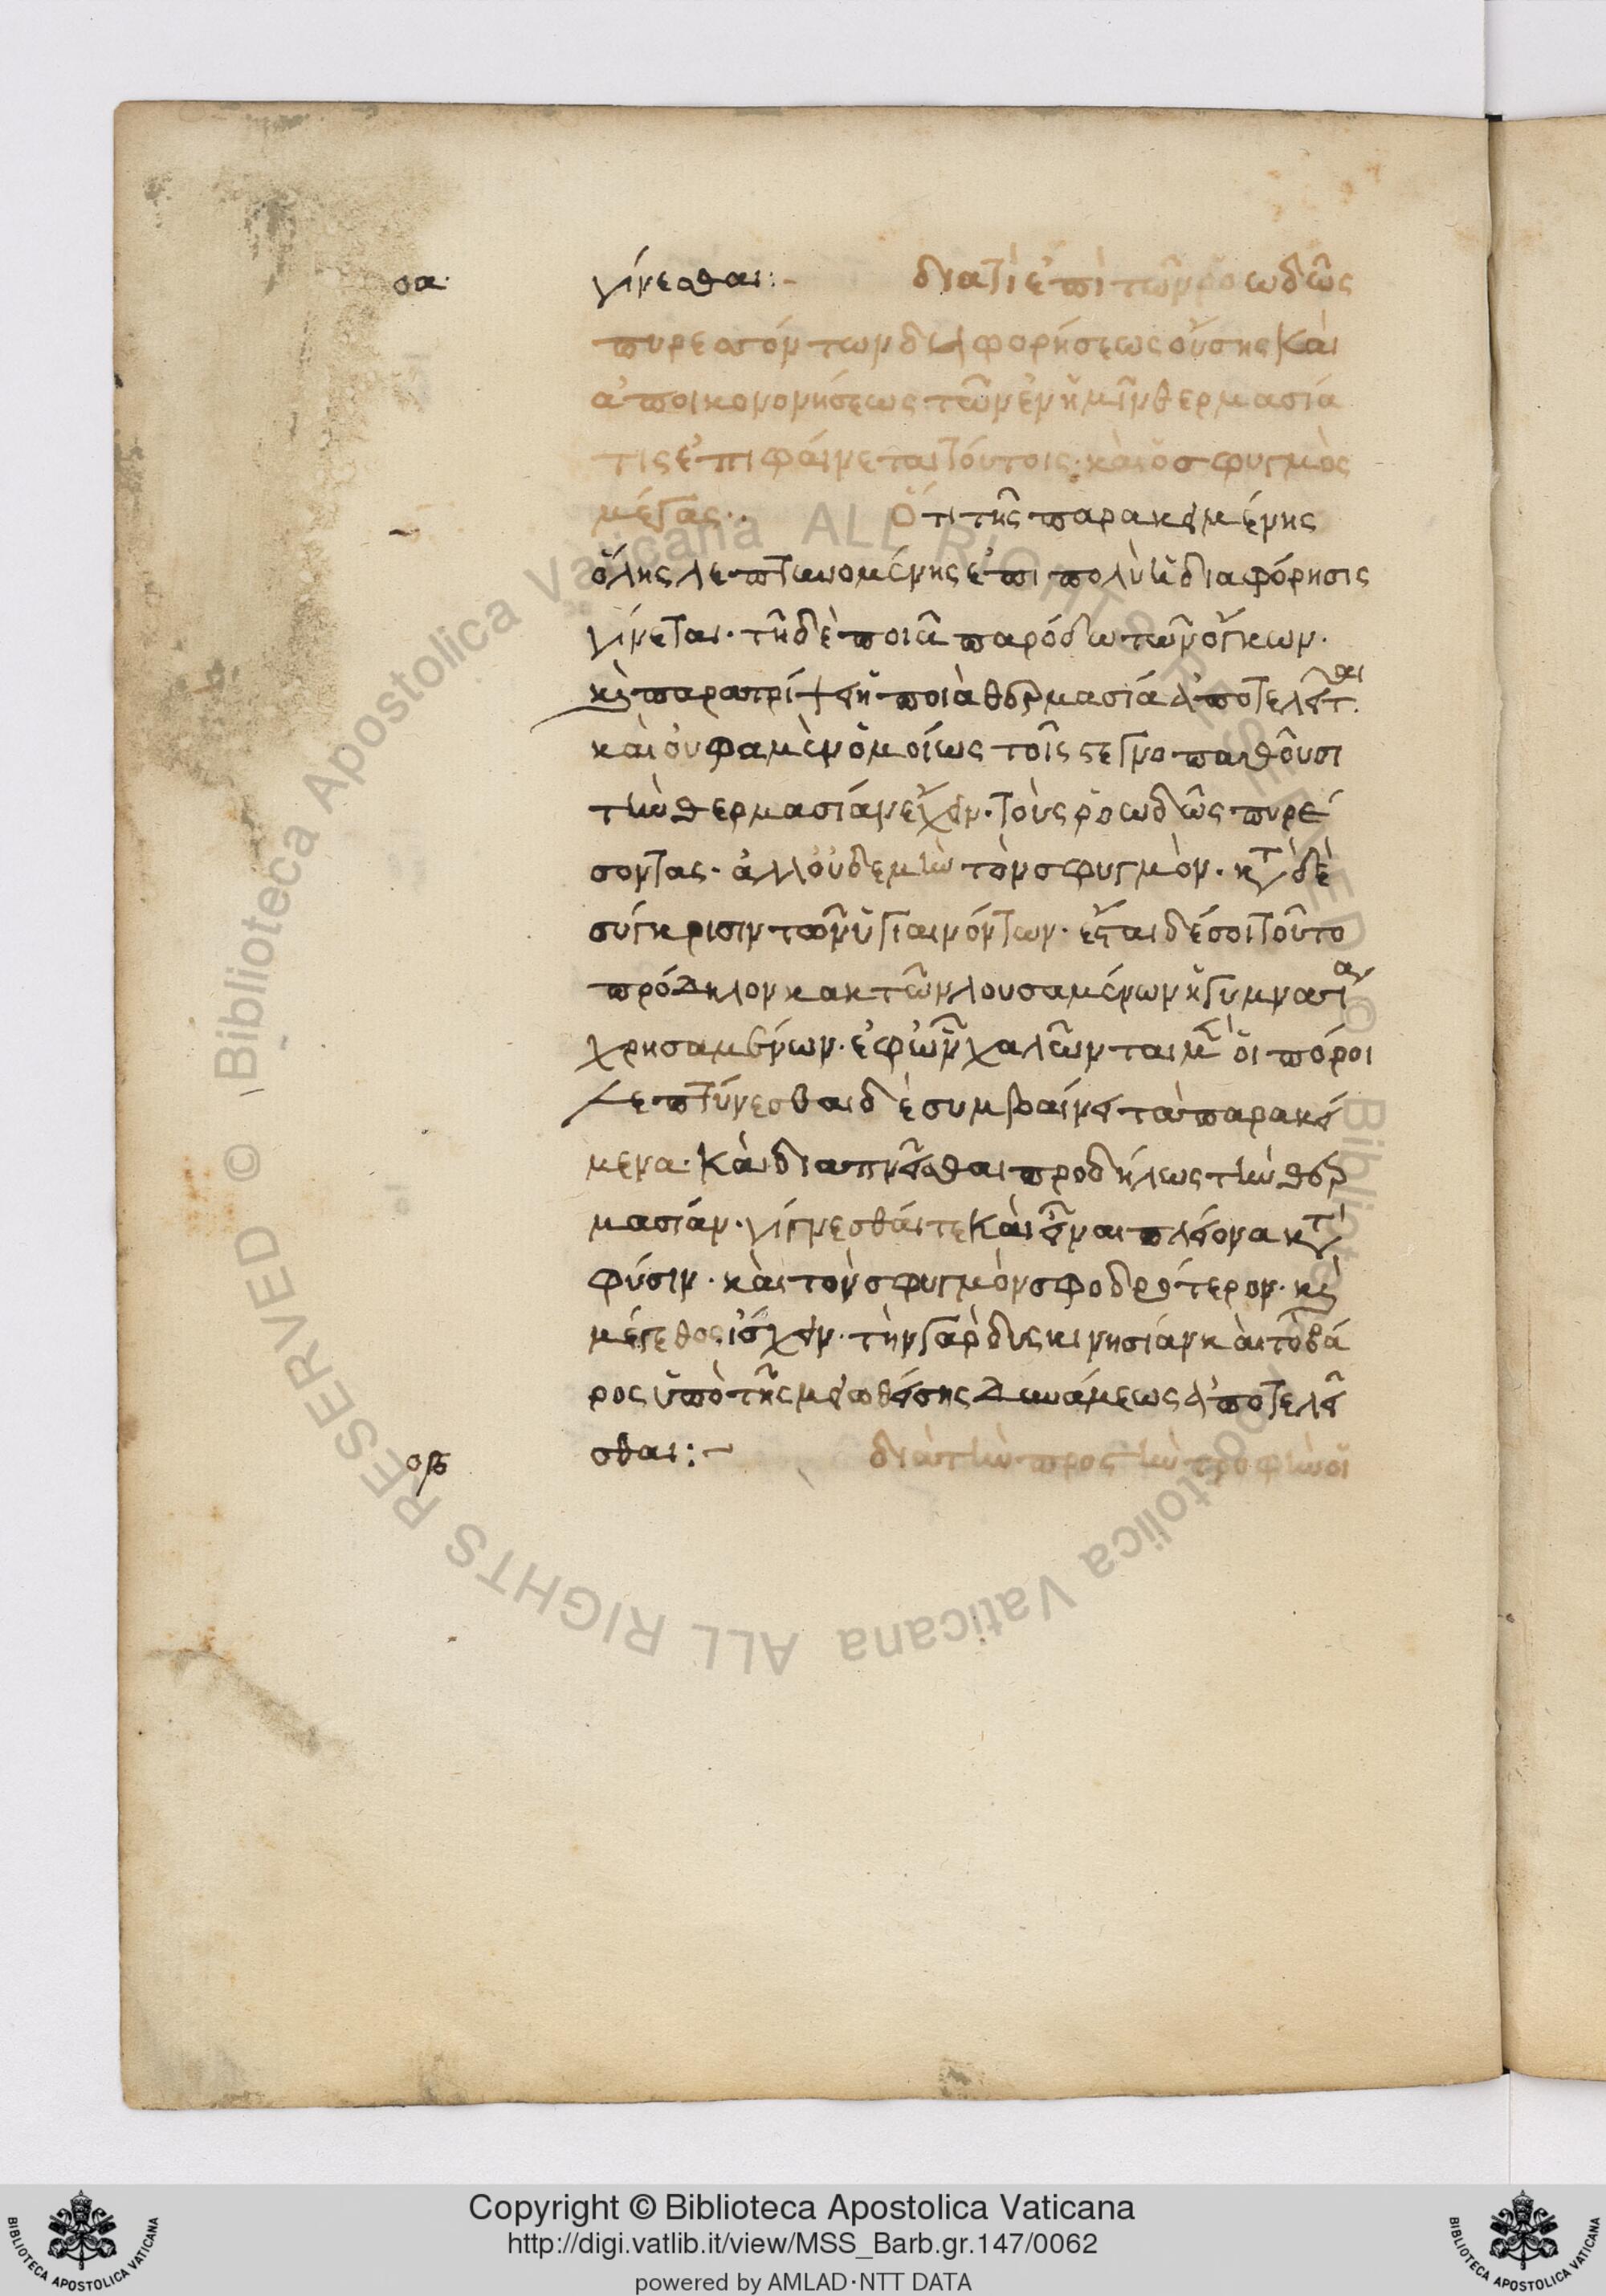 οα
γίνεσθαι:- διατί ἐπὶ τῶν ῥοωδῶς
πυρεσσόντων διαφορήσεως οὔσης καὶ
ἀποικονομήσεως τῶν ἐν ἡμῖν θερμασία
τις ἐπιφαίνεται τούτοις· καὶ ὁ σφυγμὸς
μέγας·. Ὅτι τῆς παρακειμένης
ὕλης λεπτυνομένης ἐπιπολὺ ἡ διαφόρησις
γίνεται· τῆ δὲ ποιᾶ παρόδω τῶν ὄγκων·
κὶ παρατρίψει ἡ ποιὰ θερμασία ἀποτελεῖται.
καὶ οὐ φαμὲν ὁμοίως τοῖς στεγνοπαθοῦσι
τὴν θερμασίαν ἔχειν· τοὺς ῥοωδῶς πυρέ
σοντας· ἀλλ οὐδε μὴν τὸν σφυγμὸν· κτ δὲ
σύγκρισιν τῶν ὑγιαινόντων· ἔσται δέ σοι τοῦτο
πρόδηλον κακ τῶν λουσαμένων ἢ γυμνασίαν
χρησαμένων· ἐφ ὧν χαλῶνται μ οἱ πόροι
λεπτύνεσθαι δὲ συμβαίνει τὰ παρακεί
μενα· καὶ διαπνεῖσθαι προδήλως τὴν θερ
μασίαν· γίγνεσθαί τε καὶ εἶναι πλείονα κτ
φύσιν· καὶ τὸν σφυγμὸν σφοδρότερον· κὶ
μέγεθος ἴσχειν· τὴν γὰρ δυσκινησίαν καὶ τὸ βά
ρος ὑπὸ τῆς μειωθείσης δυνάμεως ἀποτελεῖ
σθαι:-
οβ
διὰ τὴν πρὸς τὴν τροφὴν οἱ
Copyright © Biblioteca Apostolica Vaticana
http://digi.vatlib.it/view/MSS_Barb.gr.147/0062
powered by AMLAD·NTT DATA
BIBLIOTECA APOSTOLICA VATICANA
BIBLIOTECA APOSTOLICA VATICANA
© Biblioteca Apostolica Vaticana ALL RIGHTS RESERVED
© Biblioteca Apostolica Vaticana ALL RIGHTS RESERVED